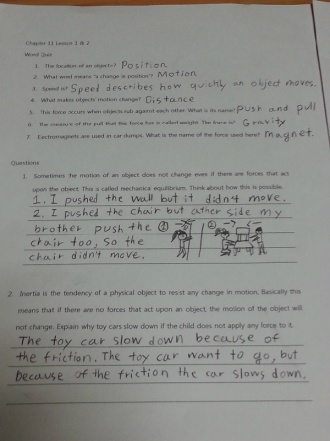 Chapter 11 Lesson 1 & 2
Word Quiz
1. The location of an object=? Position
2. What word means 'a change in position'? Motion
3. Speed is? Speed describes how quickly an object moves.
4. What makes objects' motion change? Distance
5. This force occurs when objects rub against each other. What is its name? Push and pull
6. The measure of the pull that this force has is called weight. The force is? Gravity
7. Electromagnets are used in car dumps. What is the name of the force used here? magnet.
Questions
1. Sometimes the motion of an object does not change even if there are forces that act
upon the object. This is called mechanical equilibrium. Think about how this is possible.
1. I pushed the wall but it didn't move.
2. I pushed the chair but other side my
brother push the ① ②
chair too, so the
chair didn't move.
2. Inertia is the tendency of a physical object to resist any change in motion. Basically this
means that if there are no forces that act upon an object, the motion of the object will
not change. Explain why toy cars slow down if the child does not apply any force to it.
The toy car slow down because of
the friction. The toy car want to go, but
because of the friction the car slows down.